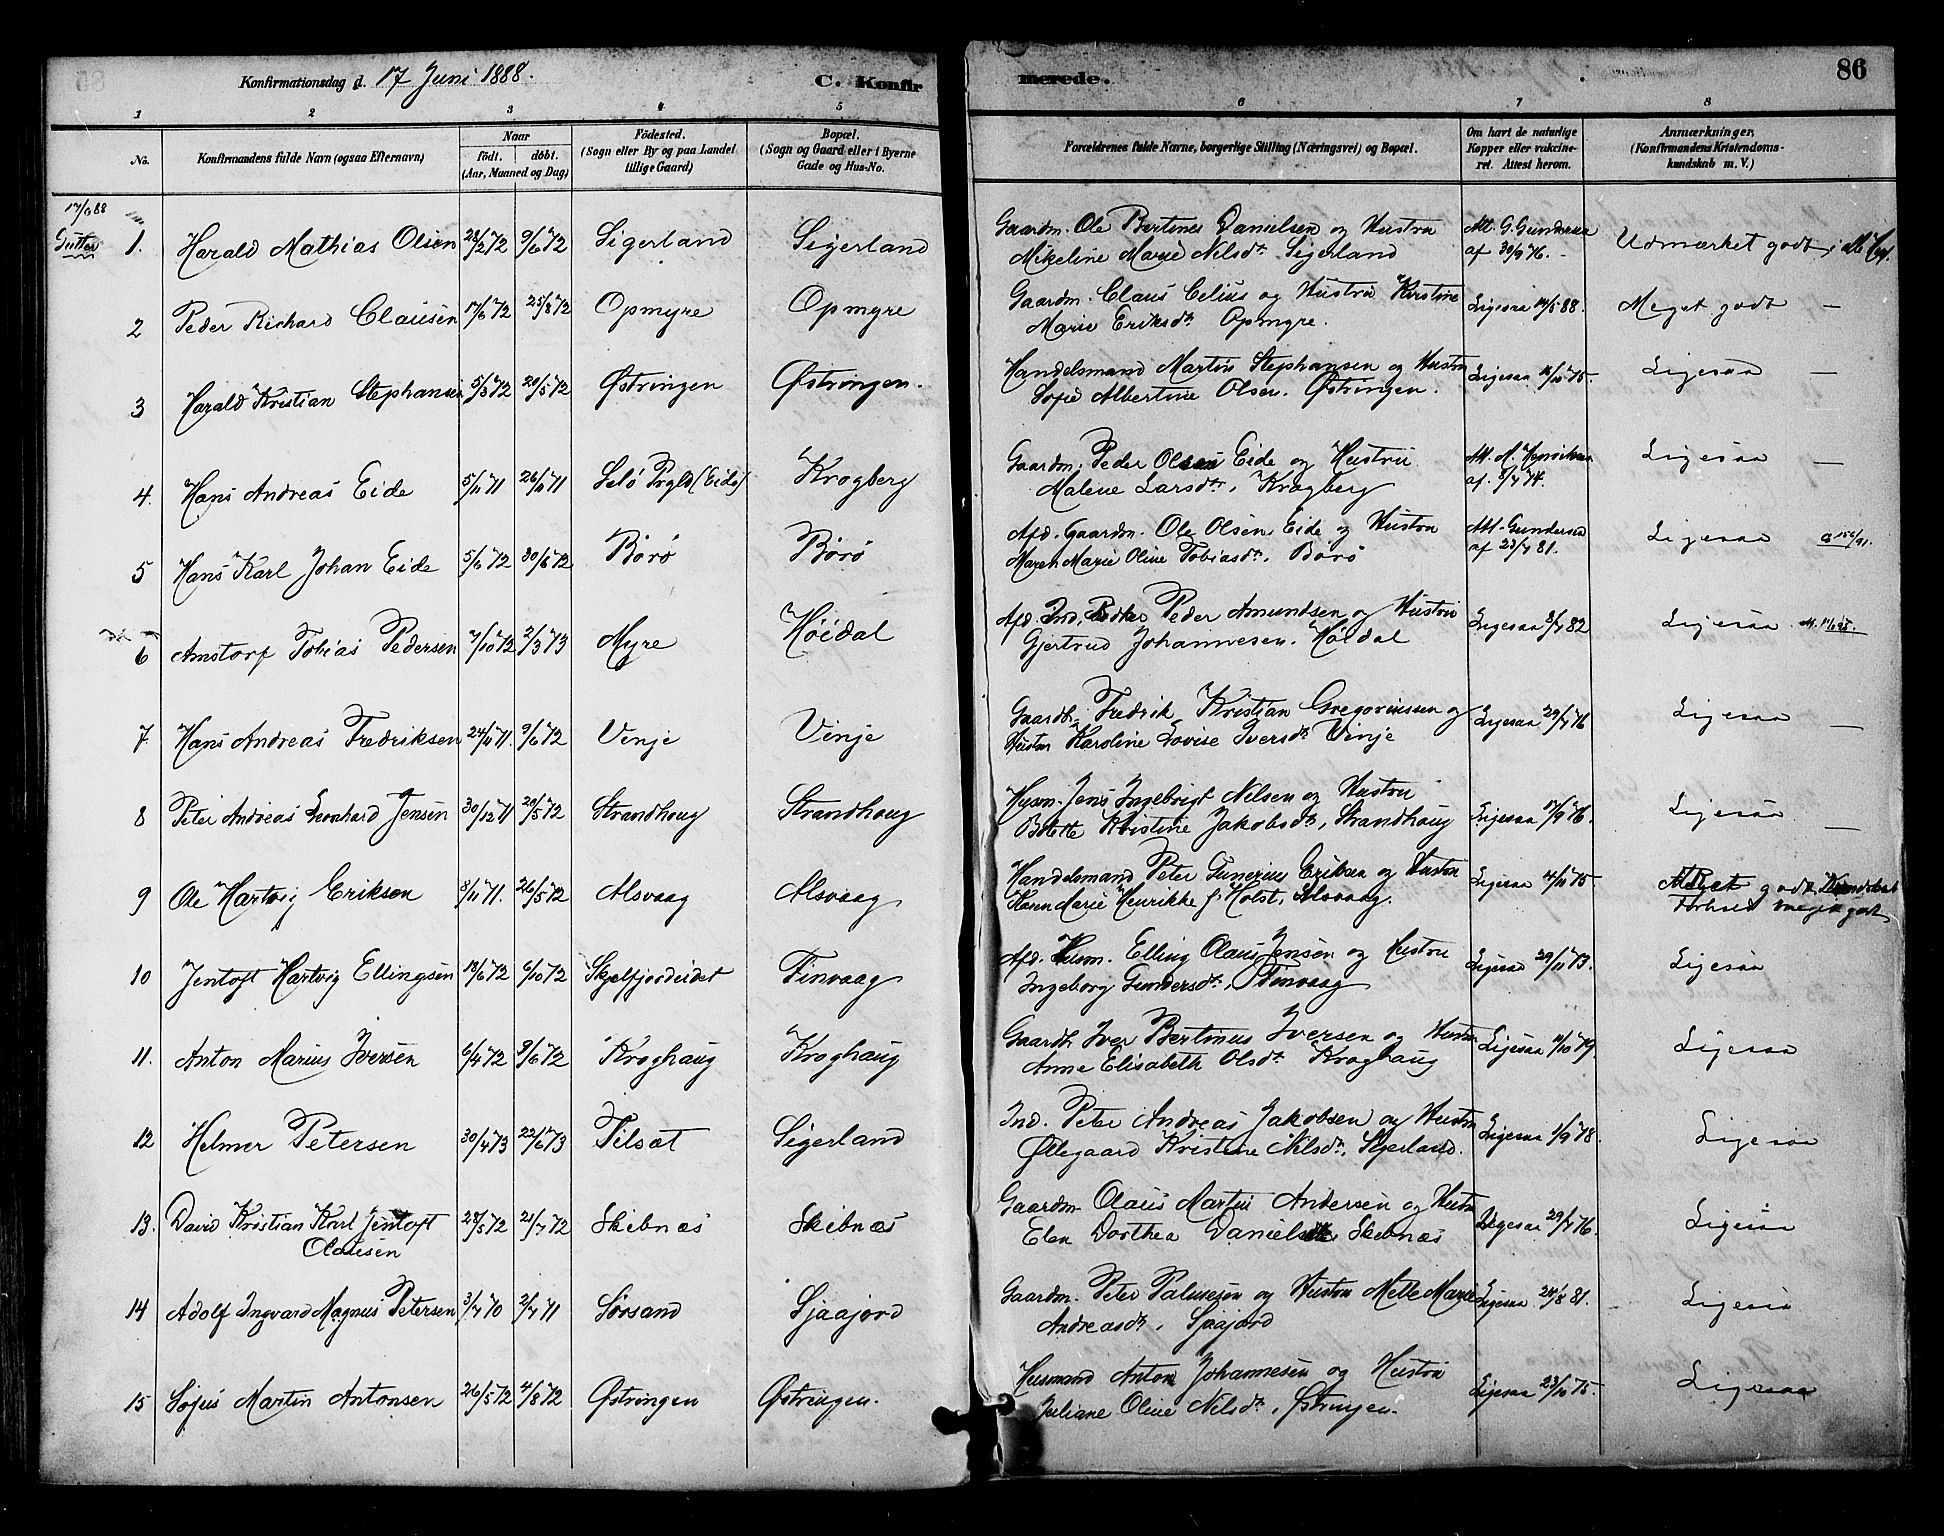 Konfirmationsdag d. 17 Juni 1888.
C. Konfirmerede.
86
1 2 3 4 5 6 7 8
No.
Konfirmandens fulde Navn (ogsaa Efternavn)
Naar
født. døbt.
(Aar, Maaned og Dag)
Fødested.
(Sogn eller By og paa Landet
tillige Gaard)
Bopæl.
(Sogn og Gaard eller i Byerne
Gade og Hus-No.
Forældrenes fulde Navne, borgerlige Stilling (Næringsvei) og Bopæl.
Om havt de naturlige
Kopper eller vaccine-
ret. Attest herom.
Anmærkninger,
(Konfirmandens Kristendoms-
kundskab m. V.)
17/6 88
Gutter
1. Harald Mathias Olsen 28/2 72 9/6 72 Sigerland Sigerland Gaardm. Ole Bertines Danielsen og Hustru
Mikeline Marie Nilsdtr Sigerland Att. G. Gundersen
af 30/9 76. Udmærket godt
2 Peder Richard Clausen 17/6 72 25/8 72 Opmyre Opmyre Gaardm. Claus Celius og Hustru Kirstine
Marie Eriksdtr Opmyre. Ligesaa 14/5 88. Meget godt —
3 Harald Kristian Stephansen 5/3 72 20/5 72 Østringen Østringen. Handelsmand Martin Stephansen og Hustru
Sofie Albertine Olsen. Østringen. Ligesaa 16/10 75. Ligesaa —
4. Hans Andreas Eide 5/11 71 26/11 71 Selø Prgld (Eide) Krogberg Gaardm. Peder Olsen Eide og Hustru
Malene Larsdtr, Krogberg Att. A. Henriksen
af. 8/4 74. Ligesaa —
5 Hans Karl Johan Eide 5/6 72 30/6 72 Børø Børø Afd. Gaardm. Ole Olsen Eide og Hustru
Maren Marie Oline Tobiasdtr. Børø Att. Gundersen
af 23/7 81. Ligesaa
6 Arnstorf Tobias Pedersen 7/10 72 2/3 73 Myre Høidal Afd. Ind. Peder Amundsen og Hustru
Gjertrud Johannesen. Høidal Ligesaa 3/7 82 Ligesaa
7. Hans Andreas Fredriksen 24/11 71. 9/6 72 Vinje Vinje Gaardb. Fredrik Kristian Gregoriussen og
Hustru Karoline Lovise Iversdtr Vinje Ligesaa 29/7 76 Ligesaa —
8 Peter Andreas Leonhard Jensen 30/12 71 20/5 72 Strandhoug Strandhoug Husm. Jens Ingebrigt Nilsen og Hustru
Bolette Kristine Jakobsdtr, Strandhaug Ligesaa 17/9 76. Ligesaa —
9 Ole Hartvig Eriksen 8/11 71. 26/5 72 Alsvaag Alsvaag Handelsmand Peter Tunerius Eriksen og Hustru
Karen Marie Henrikke f. Holst, Alsvaag. Ligesaa 4/10 75 Meget godt Kundskab
Forhold meget godt
10 Jentoft Hartvig Ellingsen 18/6 72 6/10 72 Skjelfjordeidet Finvaag Afd. Husm. Elling Olaus Jensen og Hustru
Ingeborg Gundersdtr, Finvaag Ligesaa 29/11 73. Ligesaa
11. Anton Marius Iversen 6/4 72 9/6 72 Kroghaug Kroghaug Gaardb. Iver Bertinus Iversen og Hustru
Anne Elisabeth Olsdtr Kroghaug Ligesaa 11/10 79. Ligesaa
12 Helmer Petersen 30/4 73 22/6 73 Tilsæt Sigerland Ind. Peter Andreas Jakobsen og Hustru
Øllegaard Kristine Nilsdtr, Sigerland. Ligesaa 1/9 78. Ligesaa
13. David Kristian Karl Jentoft
Olausen 28/5 72 21/7 72 Skibnæs Skibnæs Gaardm. Olaus Martin Andersen og Hustru
Elen Dorthea Danielsdtr Skibnæs Ligesaa 29/7 76. Ligesaa
14 Adolf Ingvard Magnus Petersen 3/7 70 2/7 71 Sørsand Sjaajord Gaardm. Peter Palmesen og Hustru Mette Marie
Andreasdtr, Sjaajord Ligesaa 24/8 81. Ligesaa
15 Sofus Martin Antonsen 26/5 72 4/8 72 Østringen Østringen. Husmand Anton Johannesen og Hustru
Juliane Oline Nilsdtr, Østringen. Ligesaa 23/10 75. Ligesaa